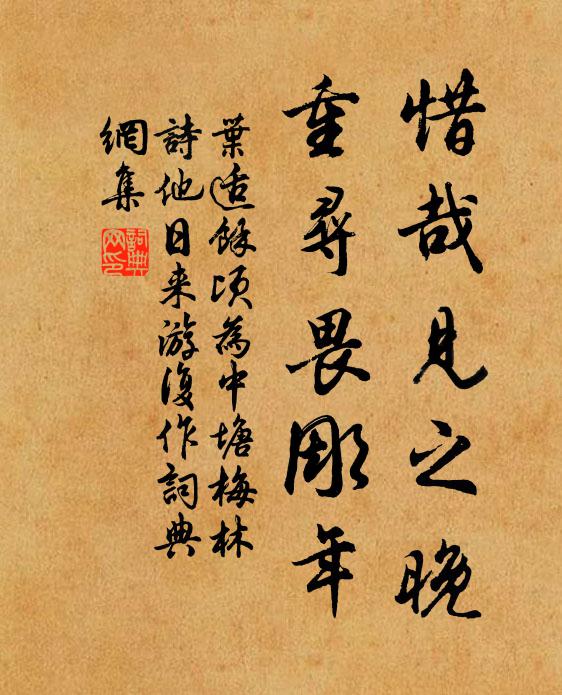 惜哉見之晚
重尋畏彫年
葉适餘頃為中塘梅林
詩他日来游復作詞典
網集
詞典網印